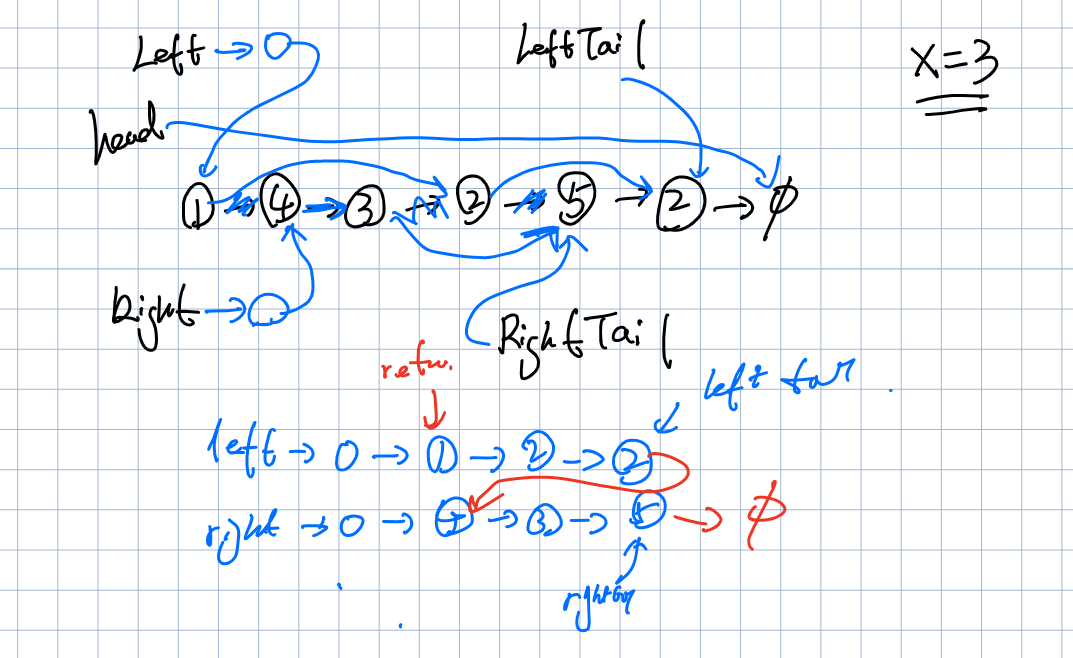 Left → 0
LeftTail
x=3
head
1 → 4 → 3 → 2 → 5 → 2 → ∅
Right →
RightTail
retu.
left tail
left → 0 → 1 → 2 → 2
right → 0 → 4 → 3 → 5 → ∅